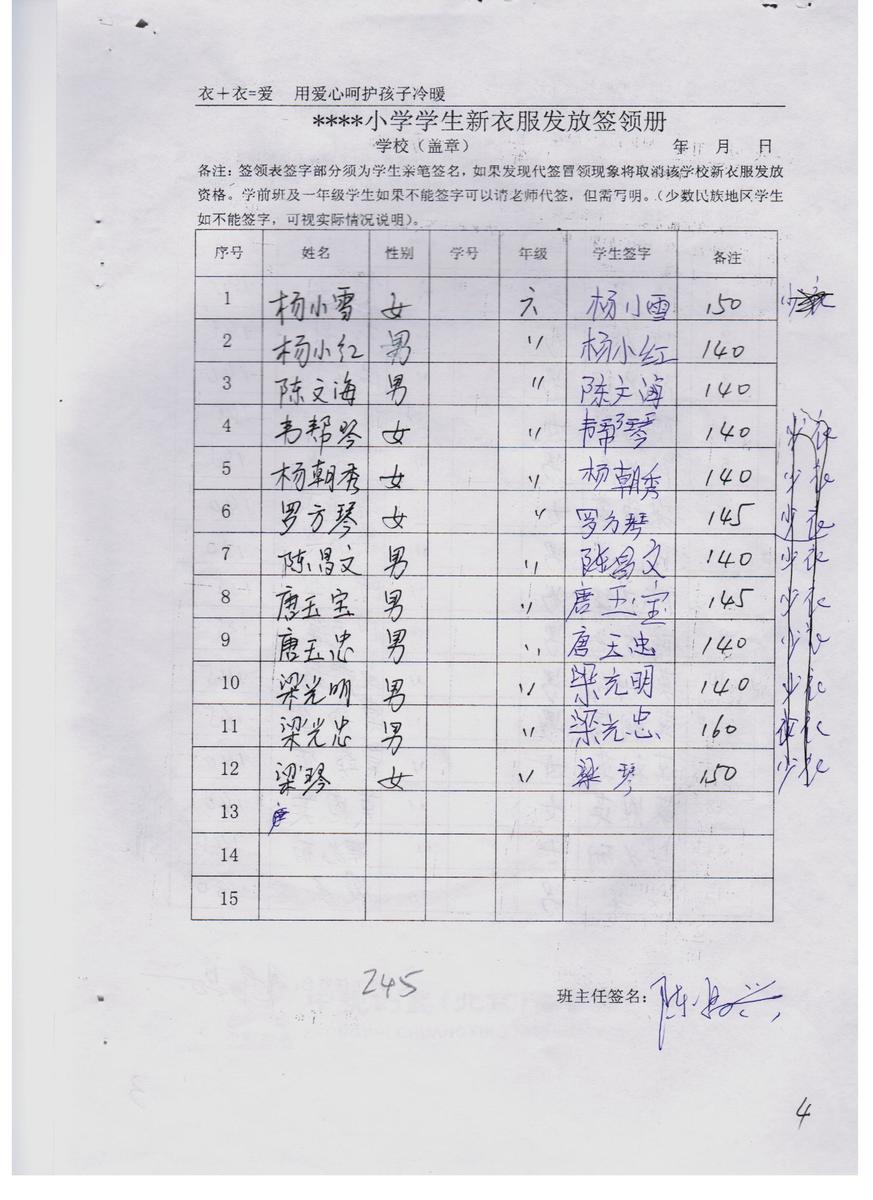 衣＋衣=爱 用爱心呵护孩子冷暖
****小学学生新衣服发放签领册
学校（盖章） 年 月 日
备注：签领表签字部分须为学生亲笔签名，如果发现代签冒领现象将取消该学校新衣服发放
资格。学前班及一年级学生如果不能签字可以请老师代签，但需写明。（少数民族地区学生
如不能签字，可视实际情况说明）。
序号 姓名 性别 学号 年级 学生签字 备注
1 杨小雪 女 六 杨小雪 150
2 杨小红 男 〃 杨小红 140
3 陈文海 男 〃 陈文海 140
4 韦帮琴 女 〃 韦帮琴 140 少衣
5 杨朝秀 女 〃 杨朝秀 140 少衣
6 罗方琴 女 〃 罗方琴 145 少衣
7 陈昌文 男 〃 陈昌文 140 少衣
8 唐玉宝 男 〃 唐玉宝 145 少衣
9 唐玉忠 男 〃 唐玉忠 140 少衣
10 梁光明 男 〃 梁光明 140 少衣
11 梁光忠 男 〃 梁光忠 160 衣
12 梁琴 女 〃 梁琴 150 少衣
13
14
15
245
班主任签名：陈
4